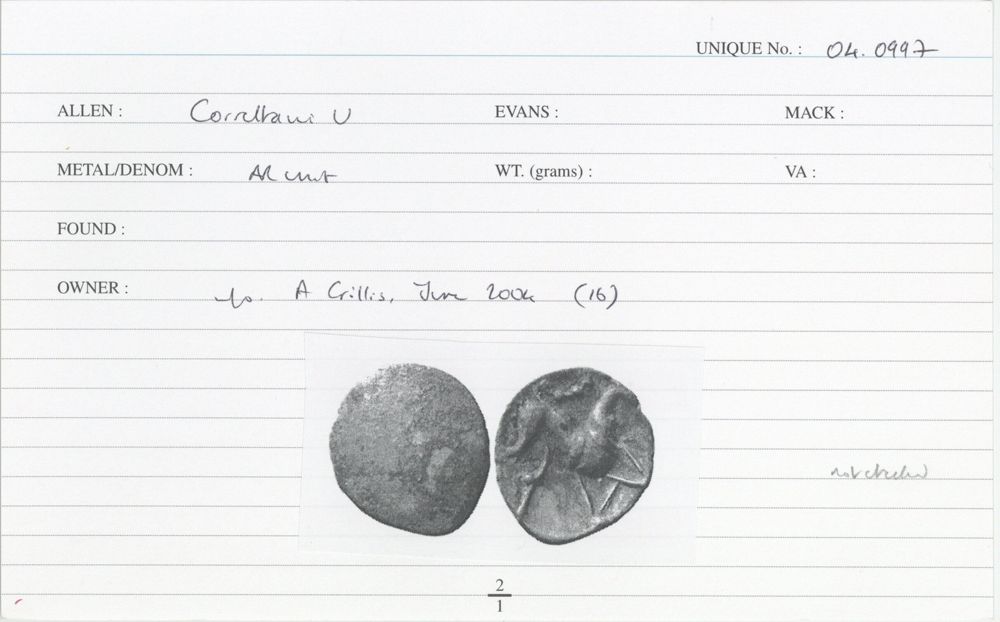 UNIQUE No. : 04.0997
ALLEN : Corieltauvi U EVANS : MACK :
METAL/DENOM : AR unit WT. (grams) : VA :
FOUND :
OWNER : A Gillis, June 2004 (16)
not checked
2
1